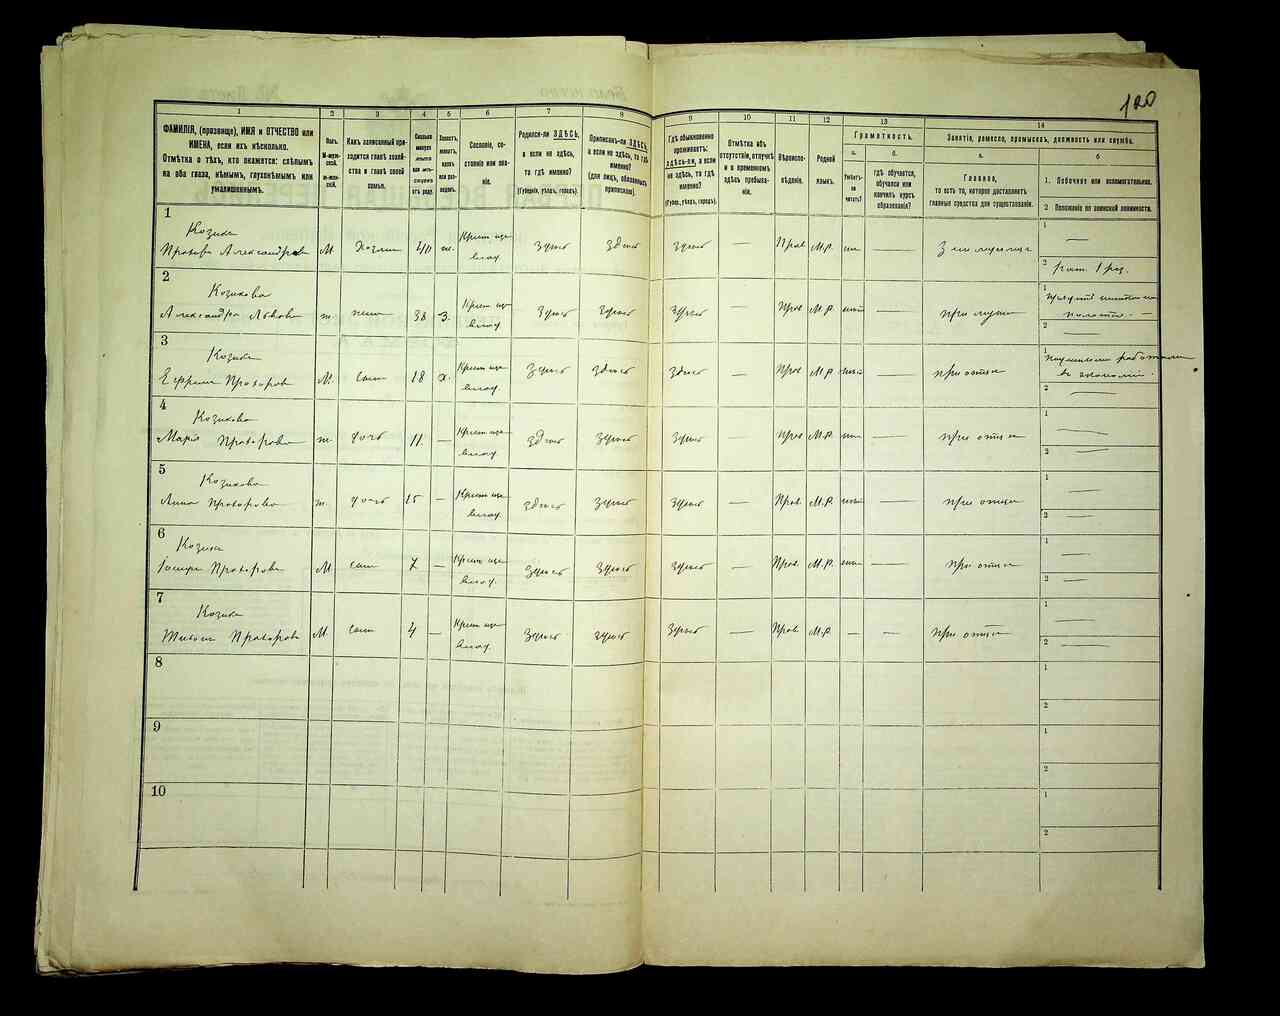 120
1 2 3 4 5 6 7 8 9 10 11 12 13 14
ФАМИЛІЯ, (прозвище), ИМЯ и ОТЧЕСТВО или
ИМЕНА, если ихъ нѣсколько.
Отмѣтка о тѣхъ, кто окажется: слѣпымъ
на оба глаза, нѣмымъ, глухонѣмымъ или
умалишеннымъ.
Полъ.
М-муж-
ской.
ж-жен-
скій.
Какъ записанный при-
ходится главѣ хозяй-
ства и главѣ своей
семьи.
Сколько
минуло
лѣтъ
отъ роду.
Холостъ,
женатъ,
вдовъ
или раз-
веденъ.
Сословіе, со-
стояніе или зва-
ніе.
Родился-ли ЗДѢСЬ,
а если не здѣсь,
то гдѣ именно?
(Губернія, уѣздъ, городъ).
Приписанъ-ли ЗДѢСЬ,
а если не здѣсь, то гдѣ
именно?
(для лицъ, обязанныхъ
припискою).
Гдѣ обыкновенно
проживаетъ:
здѣсь-ли, а если
не здѣсь, то гдѣ
именно?
(Губер., уѣздъ, городъ).
Отмѣтка объ
отсутствіи, отлучкѣ
и о временномъ
здѣсь пребыва-
ніи.
Вѣроиспо-
вѣданіе.
Родной
языкъ.
Грамотность.
а.
Умѣетъ-
ли
читать?
б.
Гдѣ обучается,
обучался или
кончилъ курсъ
образованія?
Занятіе, ремесло, промыселъ, должность или служба.
а.
Главное,
то есть то, которое доставляетъ
главныя средства для существованія.
б
1. Побочное или вспомогательное.
2 Положеніе по воинской повинности.
1
Козика
Прохоръ Александровъ М Хозяин 40 ж. Крест. из
влад. здѣсь здѣсь здѣсь — Прав М.Р. — земледѣлие
1 —
2 рат. 1 раз.
2
Козикова
Александра Львова ж. жена 38 з. Крест из
влад. здѣсь здѣсь здѣсь — Прав М.Р. — при мужѣ
1
2 —
3
Козика
Ефремъ Прохоровъ М. сынъ 18 х. Крест из
влад. здѣсь здѣсь здѣсь — Прав М.Р. — при отцѣ
1
въ экономіи.
2 —
4
Козикова
Марія Прохорова ж. дочь 11. — Крест из
влад. здѣсь здѣсь здѣсь — Прав М.Р. — при отцѣ
1 —
2 —
5
Козикова
Анна Прохорова ж. дочь 15 — Крест из
влад. здѣсь здѣсь здѣсь — Прав. М.Р. — при отцѣ
1 —
2 —
6
Козика
Іосифъ Прохоровъ М сынъ 7 — Крест из
влад. здѣсь здѣсь здѣсь — Прав. М.Р. — при отцѣ
1 —
2 —
7
Козика
Тихонъ Прохоровъ М. сынъ 4 — Крест из
влад. здѣсь здѣсь здѣсь — Прав. М.Р. — — при отцѣ
1 —
2 —
8
1
2
9
1
2
10
1
2